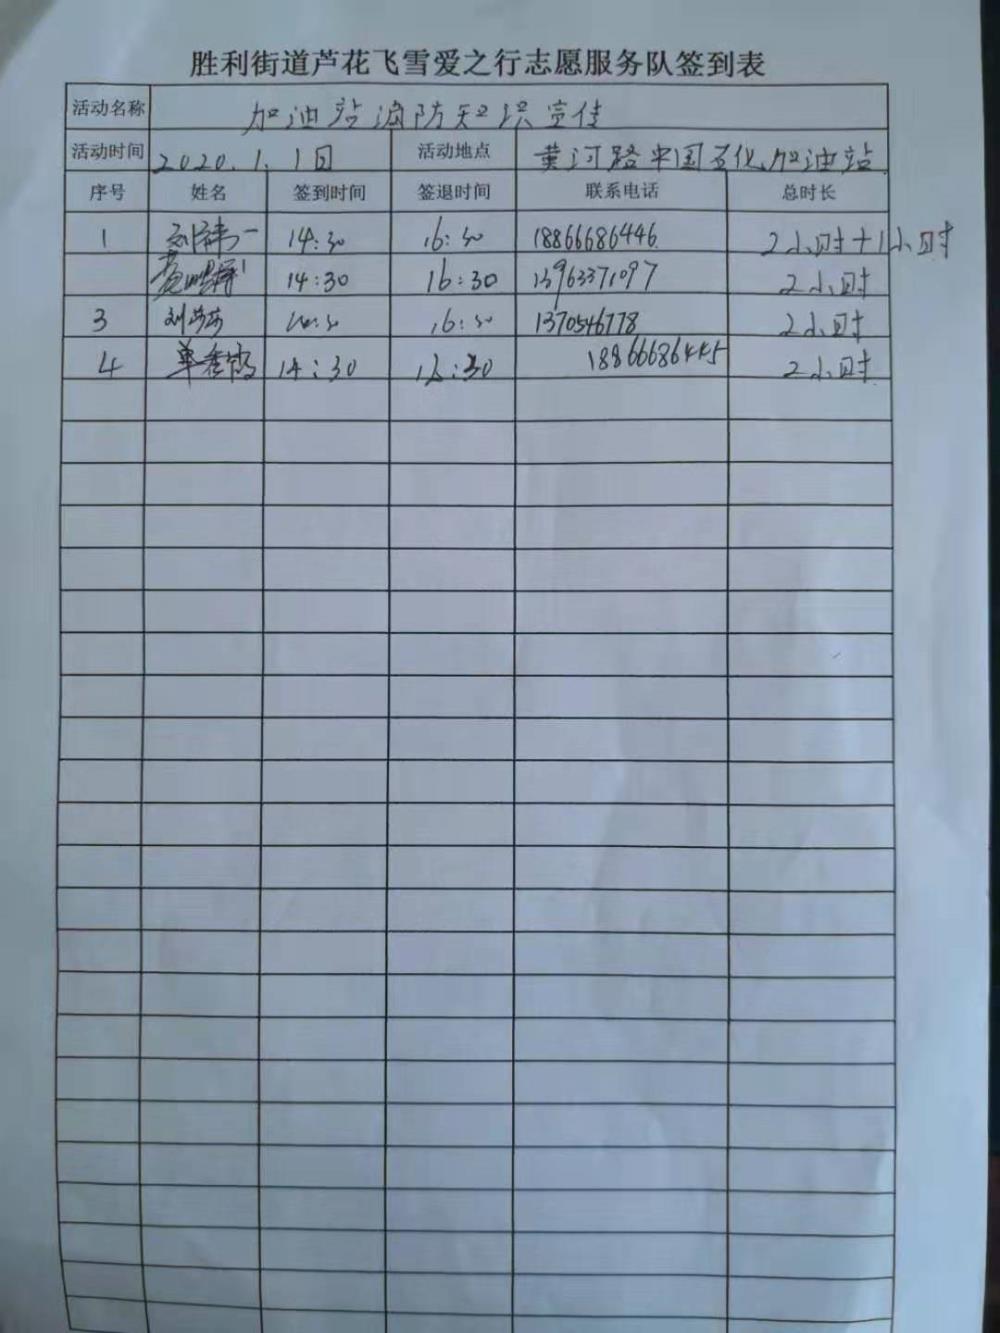 胜利街道芦花飞雪爱之行志愿服务队签到表
活动名称 加油站消防知识宣传
活动时间 2020.1.1日 活动地点 黄河路中国石化加油站
序号 姓名 签到时间 签退时间 联系电话 总时长
1 14:30 16:30 18866686446 2小时+1小时
14:30 16:30 13963371097 2小时
3 刘莎莎 14:30 16:30 1370546778 2小时
4 单秀鸽 14:30 16:30 18866686445 2小时